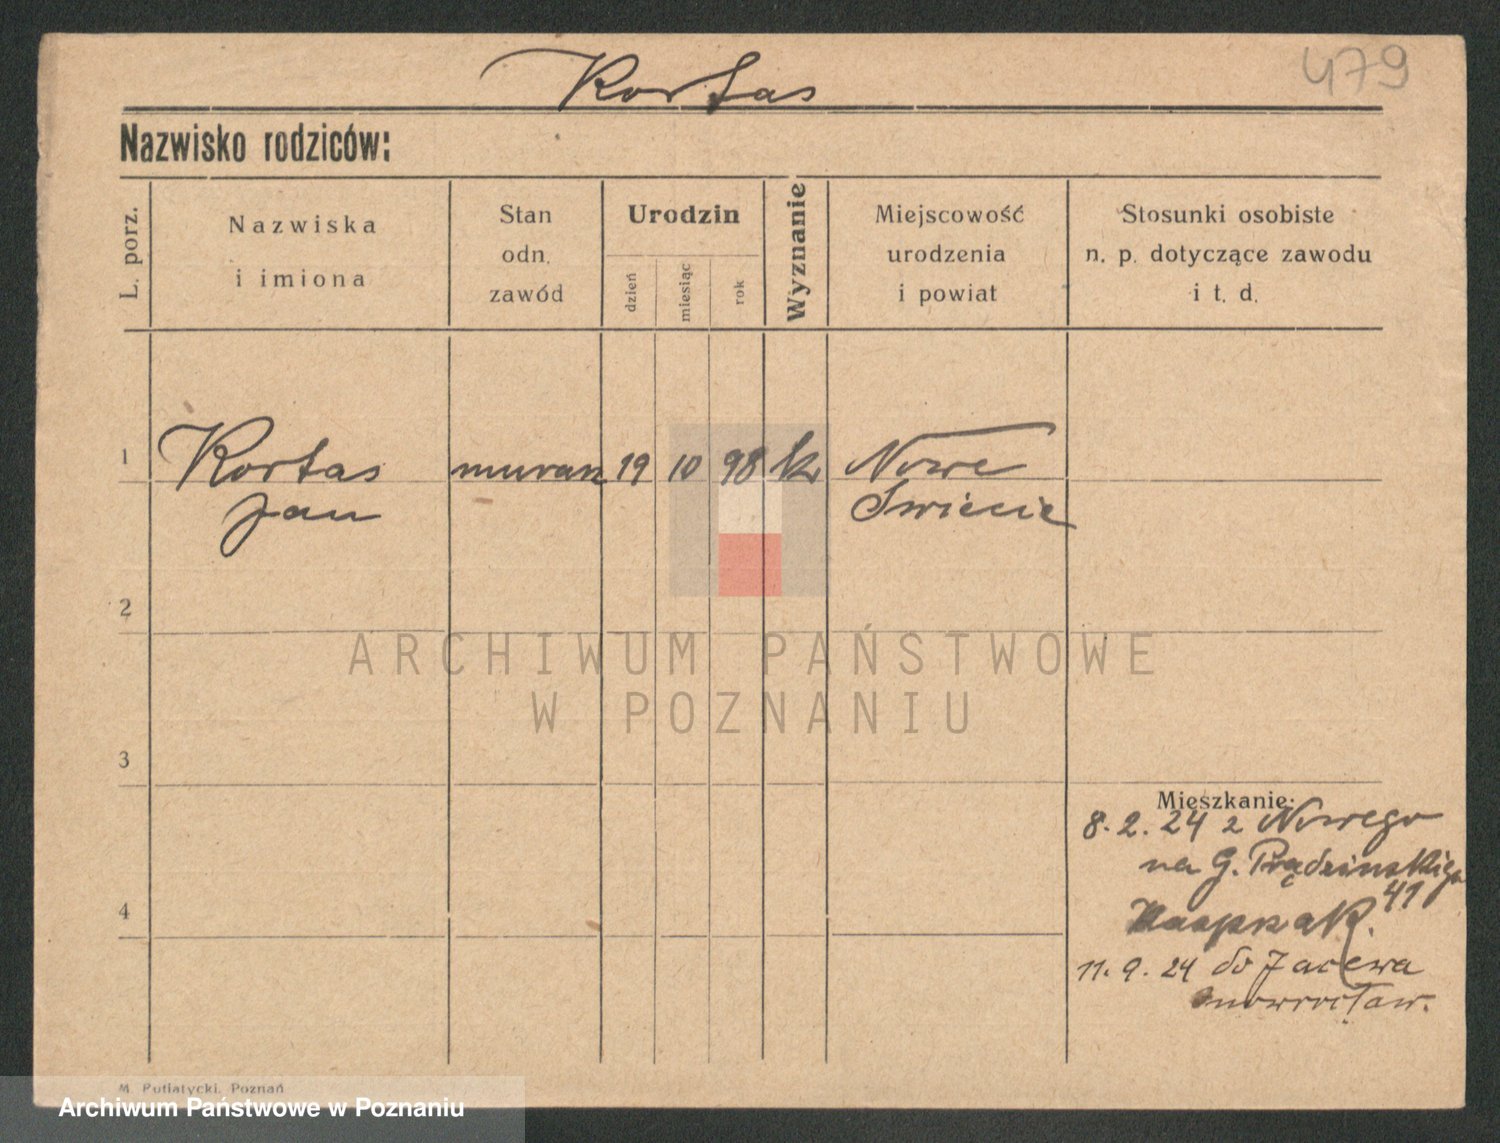 479
Kortas
Nazwisko rodziców:
L. porz.
Nazwiska
i imiona
Stan
odn.
zawód
Urodzin
dzień
miesiąc
rok
Wyznanie
Miejscowość
urodzenia
i powiat
Stosunki osobiste
n. p. dotyczące zawodu
i t. d.
1 Kortas murarz 19 10 98 k Nowe
Jan Swiecie
2
ARCHIWUM PAŃSTWOWE
W POZNANIU
3
Mieszkanie:
8.2.24 z Nowego
na G. Prądzinskiego
41
4
Kasprzak.
11.9.24 do Jacewa
Inowrocław.
M. Putiatycki, Poznań
Archiwum Państwowe w Poznaniu